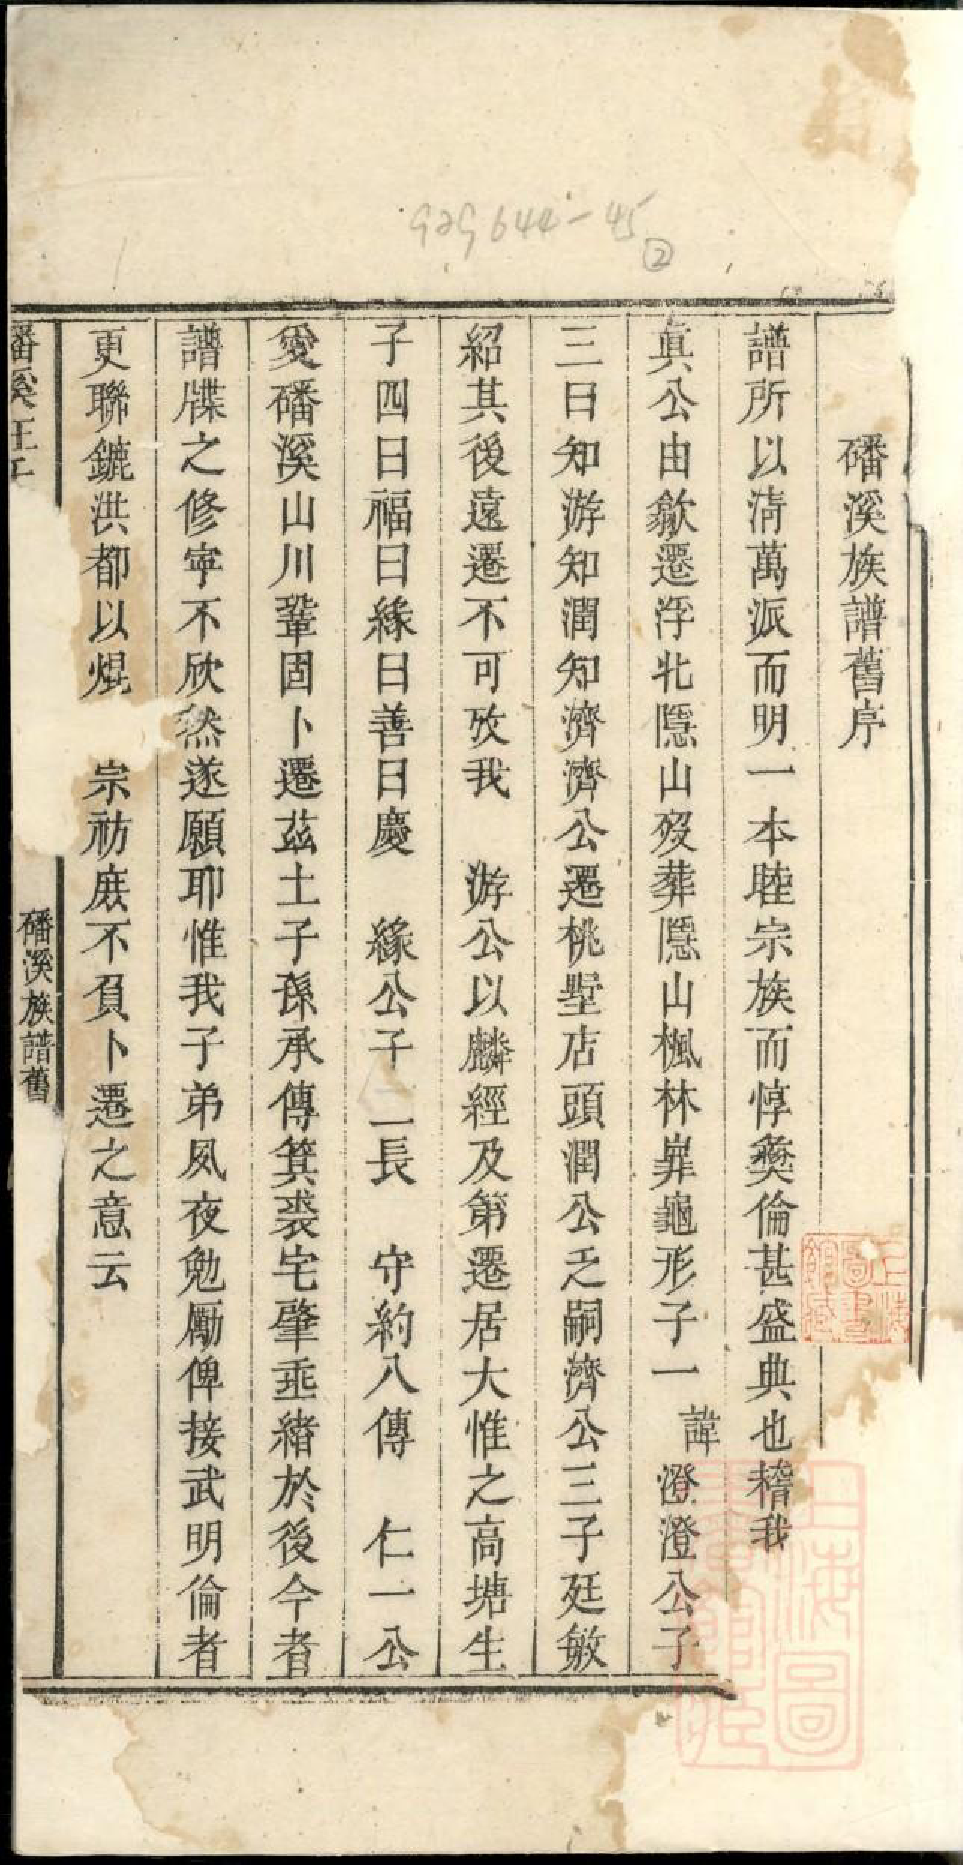 929644-45
②
磻溪族譜舊序
譜所以清萬派而明一本睦宗族而惇彝倫甚盛典也稽我
真公由歙遷浮北隱山歿葬隱山楓林𡶶龜形子一 諱澄澄公子
三曰知游知潤知濟濟公遷桃墅店頭潤公乏嗣濟公三子廷敏
紹其後遠遷不可攷我 游公以麟經及第遷居大惟之高塘生
子四曰福曰緣曰善曰慶 緣公子二長 守約八傳 仁一公
愛磻溪山川鞏固卜遷茲土子孫承傳箕裘宅肇垂緒於後今者
譜牒之修寧不欣然遂願耶惟我子弟夙夜勉勵俾接武明倫者
更聯鑣洪都以焜 宗祊庶不負卜遷之意云
磻溪汪
磻溪族譜舊
上海圖書館藏
上海圖書館藏